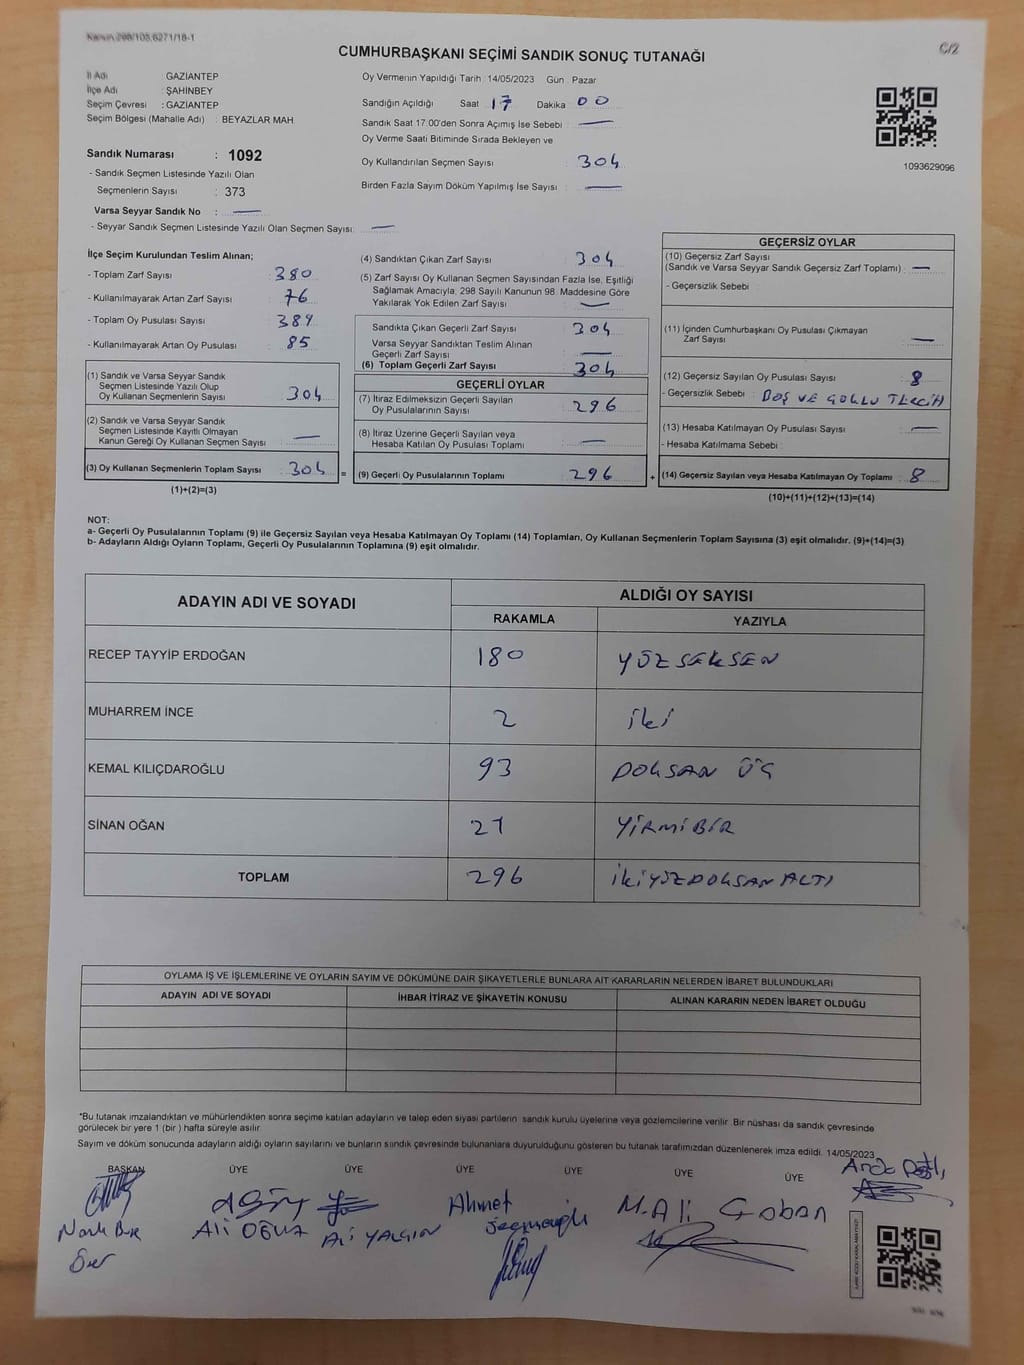 Kanun 298/105,6271/18-1
C/2
CUMHURBAŞKANI SEÇİMİ SANDIK SONUÇ TUTANAĞI
İl Adı : GAZİANTEP
İlçe Adı : ŞAHİNBEY
Seçim Çevresi : GAZİANTEP
Seçim Bölgesi (Mahalle Adı) : BEYAZLAR MAH
Sandık Numarası : 1092
- Sandık Seçmen Listesinde Yazılı Olan
Seçmenlerin Sayısı : 373
Varsa Seyyar Sandık No : —
- Seyyar Sandık Seçmen Listesinde Yazılı Olan Seçmen Sayısı: —
Oy Vermenin Yapıldığı Tarih : 14/05/2023 Gün : Pazar
Sandığın Açıldığı Saat : 17 Dakika : 00
Sandık Saat 17:00'den Sonra Açımış İse Sebebi : —
Oy Verme Saati Bitiminde Sırada Bekleyen ve
Oy Kullandırılan Seçmen Sayısı : 304
Birden Fazla Sayım Döküm Yapılmış İse Sayısı : —
1093629096
İlçe Seçim Kurulundan Teslim Alınan;
- Toplam Zarf Sayısı : 380
- Kullanılmayarak Artan Zarf Sayısı : 76
- Toplam Oy Pusulası Sayısı : 389
- Kullanılmayarak Artan Oy Pusulası : 85
(1) Sandık ve Varsa Seyyar Sandık
Seçmen Listesinde Yazılı Olup
Oy Kullanan Seçmenlerin Sayısı : 304
(2) Sandık ve Varsa Seyyar Sandık
Seçmen Listesinde Kayıtlı Olmayan
Kanun Gereği Oy Kullanan Seçmen Sayısı : —
(3) Oy Kullanan Seçmenlerin Toplam Sayısı : 304 =
(1)+(2)=(3)
(4) Sandıktan Çıkan Zarf Sayısı : 304
(5) Zarf Sayısı Oy Kullanan Seçmen Sayısından Fazla İse, Eşitliği
Sağlamak Amacıyla, 298 Sayılı Kanunun 98. Maddesine Göre
Yakılarak Yok Edilen Zarf Sayısı : —
Sandıkta Çıkan Geçerli Zarf Sayısı : 304
Varsa Seyyar Sandıktan Teslim Alınan
Geçerli Zarf Sayısı : —
(6) Toplam Geçerli Zarf Sayısı : 304
GEÇERLİ OYLAR
(7) İtiraz Edilmeksizin Geçerli Sayılan
Oy Pusulalarının Sayısı : 296
(8) İtiraz Üzerine Geçerli Sayılan veya
Hesaba Katılan Oy Pusulası Toplamı : —
(9) Geçerli Oy Pusulalarının Toplamı : 296 +
GEÇERSİZ OYLAR
(10) Geçersiz Zarf Sayısı
(Sandık ve Varsa Seyyar Sandık Geçersiz Zarf Toplamı) : —
- Geçersizlik Sebebi :
(11) İçinden Cumhurbaşkanı Oy Pusulası Çıkmayan
Zarf Sayısı : —
(12) Geçersiz Sayılan Oy Pusulası Sayısı : 8
- Geçersizlik Sebebi : BOŞ VE ÇOKLU TERCİH
(13) Hesaba Katılmayan Oy Pusulası Sayısı : —
- Hesaba Katılmama Sebebi :
(14) Geçersiz Sayılan veya Hesaba Katılmayan Oy Toplamı : 8
(10)+(11)+(12)+(13)=(14)
NOT:
a- Geçerli Oy Pusulalarının Toplamı (9) ile Geçersiz Sayılan veya Hesaba Katılmayan Oy Toplamı (14) Toplamları, Oy Kullanan Seçmenlerin Toplam Sayısına (3) eşit olmalıdır. (9)+(14)=(3)
b- Adayların Aldığı Oyların Toplamı, Geçerli Oy Pusulalarının Toplamına (9) eşit olmalıdır.
ADAYIN ADI VE SOYADI
ALDIĞI OY SAYISI
RAKAMLA YAZIYLA
RECEP TAYYİP ERDOĞAN 180 YÜZ SEKSEN
MUHARREM İNCE 2 iki
KEMAL KILIÇDAROĞLU 93 DOKSAN ÜÇ
SİNAN OĞAN 21 YİRMİBİR
TOPLAM 296 İKİYÜZDOKSANALTI
OYLAMA İŞ VE İŞLEMLERİNE VE OYLARIN SAYIM VE DÖKÜMÜNE DAİR ŞİKAYETLERLE BUNLARA AİT KARARLARIN NELERDEN İBARET BULUNDUKLARI
ADAYIN ADI VE SOYADI İHBAR İTİRAZ VE ŞİKAYETİN KONUSU ALINAN KARARIN NEDEN İBARET OLDUĞU
*Bu tutanak imzalandıktan ve mühürlendikten sonra seçime katılan adayların ve talep eden siyasi partilerin sandık kurulu üyelerine veya gözlemcilerine verilir. Bir nüshası da sandık çevresinde
görülecek bir yere 1 (bir ) hafta süreyle asılır.
Sayım ve döküm sonucunda adayların aldığı oyların sayılarını ve bunların sandık çevresinde bulunanlara duyurulduğunu gösteren bu tutanak tarafımızdan düzenlenerek imza edildi. 14/05/2023
BAŞKAN ÜYE ÜYE ÜYE ÜYE ÜYE ÜYE
Ali OĞUZ
Ali YALÇIN
Ahmet
M. Ali Çoban